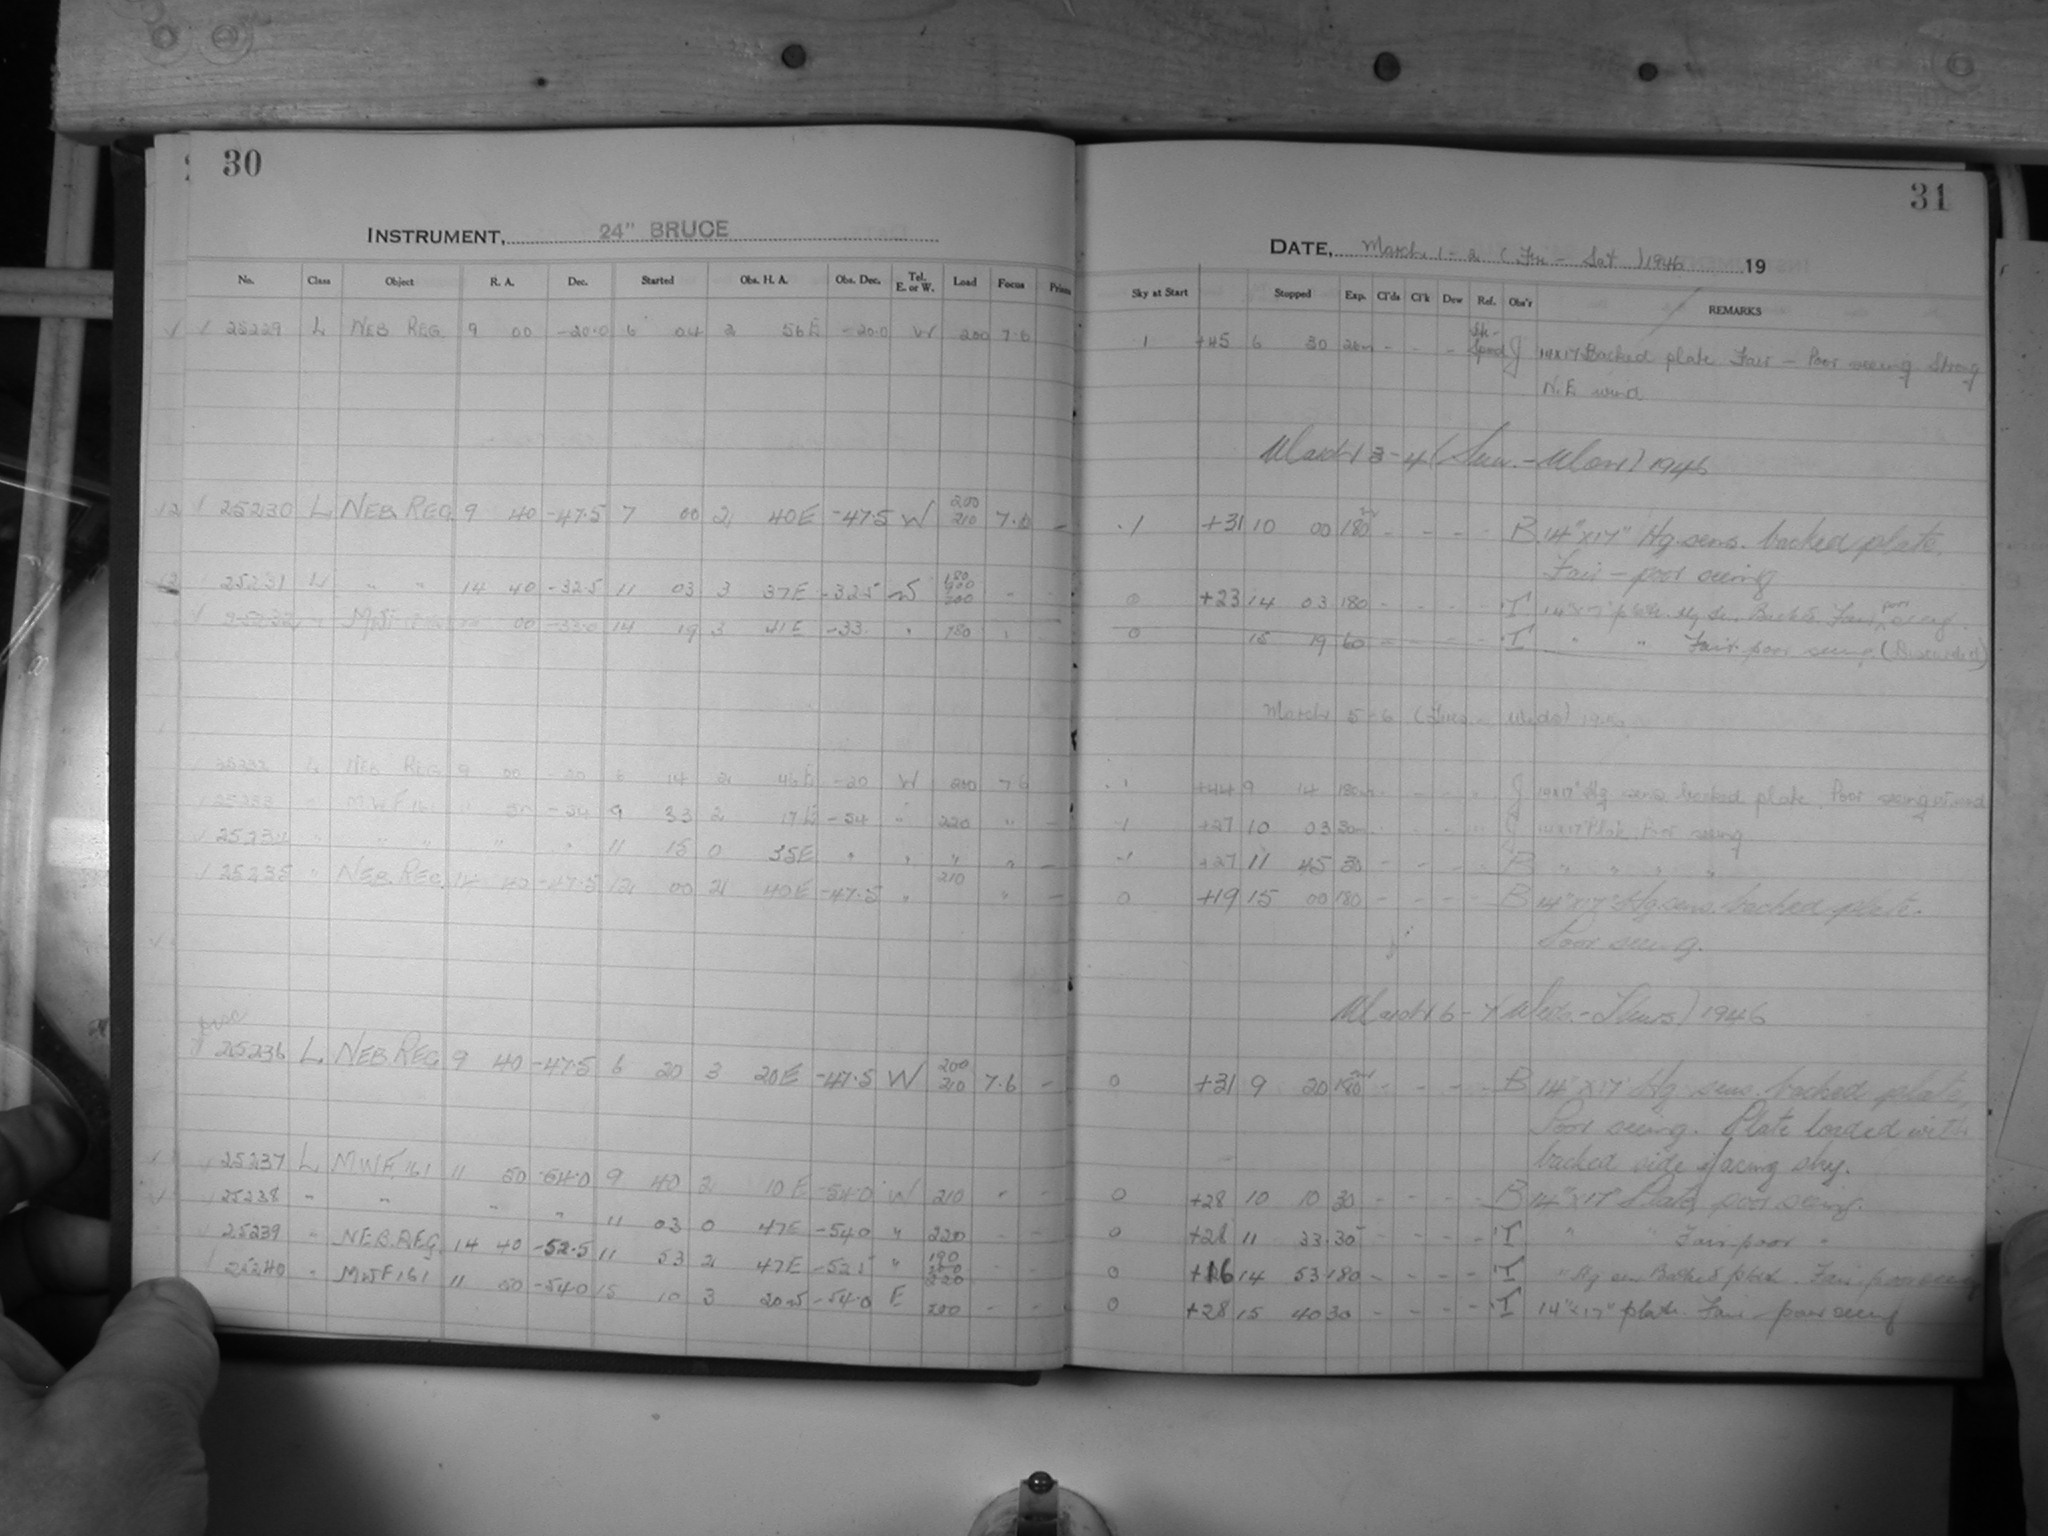 30
INSTRUMENT, 24" BRUCE
No. Class Object R. A. Dec. Started Obs. H. A. Obs. Dec. Tel. E. or W. Load Focus Prism
25229 L NEB REG. 9 00 -20.0 6 04 2 56E -20.0 W 200 7.6
25230 L NEB. REG. 9 40 -47.5 7 00 2 40E -47.5 W 200 210 7.6 -
25231 L " " 14 40 -32.5 11 03 3 37E -32.5 W 180 200 200 "
00 -33.0 14 19 3 41E -33. " 180
25232 L NEB REG 9 00 -20 6 14 2 46E -20 W 200 7.6
25233 " MWF 161 11 50 -54 9 33 2 17E -54 " 220 " -
25234 " " " " " 11 15 0 35E " " " " -
25235 " NEB. REG. 14 40 -47.5 12 00 2 40E -47.5 " 210 " -
disc
25236 L NEB. REG. 9 40 -47.5 6 20 3 20E -47.5 W 200 210 7.6 -
25237 L MWF. 161 11 50 -54.0 9 40 2 10E -54.0 W 210 " -
25238 " " " " 11 03 0 47E -54.0 " 220 - -
25239 " NEB. REG. 14 40 -52.5 11 53 2 47E -52.5 " 190 200 220 - -
25240 " MWF 161 11 50 -54.0 15 10 3 20W -54.0 E 200 - -
31
DATE, March 1 - 2 (Fri - Sat) 1946 19
Sky at Start Stopped Exp. Cl'ds Cl'k Dew Ref. Obs'r REMARKS
1 +45 6 30 26m - - - J 14x17 Backed plate Fair - Poor seeing Strong
N.E wind
March 3-4 (Sun. - Mon) 1946
.1 +31 10 00 180 - - - - B 14"x17" Hg. sens. backed plate.
Fair - poor seeing
0 +23 14 03 180 - - - - T 14"x17" plate. Hg. sen. Backed. Fair, poor seeing.
0 15 19 60 - - - - T " " Fair - poor seeing (Discarded)
March 5-6 (Tues - Weds)
.1 +44 9 14 180m - - - - J 14x17" Hg sens backed plate. Poor seeing
.1 +27 10 03 30m - - - - J 14x17 Plate Poor seeing
.1 +27 11 45 30 - - - - B " " " "
0 +19 15 00 180 - - - - B 14"x17" Hg. sens. backed plate.
Poor seeing.
March 6-7 (Weds. - Thurs) 1946
0 +31 9 20 180 - - - - B 14"x17" Hg. sens. backed plate,
Poor seeing. Plate loaded with
backed side facing sky.
0 +28 10 10 30 - - - - B 14"x17" Plate, poor seeing.
0 +28 11 33 30 - - - - T " " Fair - poor "
0 +16 14 53 180 - - - - T " Hg sen Backed plate. Fair - poor seeing
0 +28 15 40 30 - - - - T 14"x17" plate. Fair - poor seeing